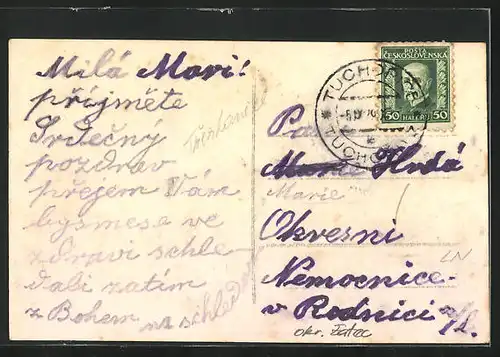 Milá Mari!
přijměte
Srdečný
pozdrav
přejem Vám
bysmese ve
zdravi schle-
dali zatím
z Bohem na schledanou
POSTA
ČESKOSLOVENSKÁ
50 HALÉŘŮ 50
* TUCHO
TUCHO
Marie Hrdá
Marie
Okresni
Nemocnice
v Rodnici n/L.
okr. Žatec
LN